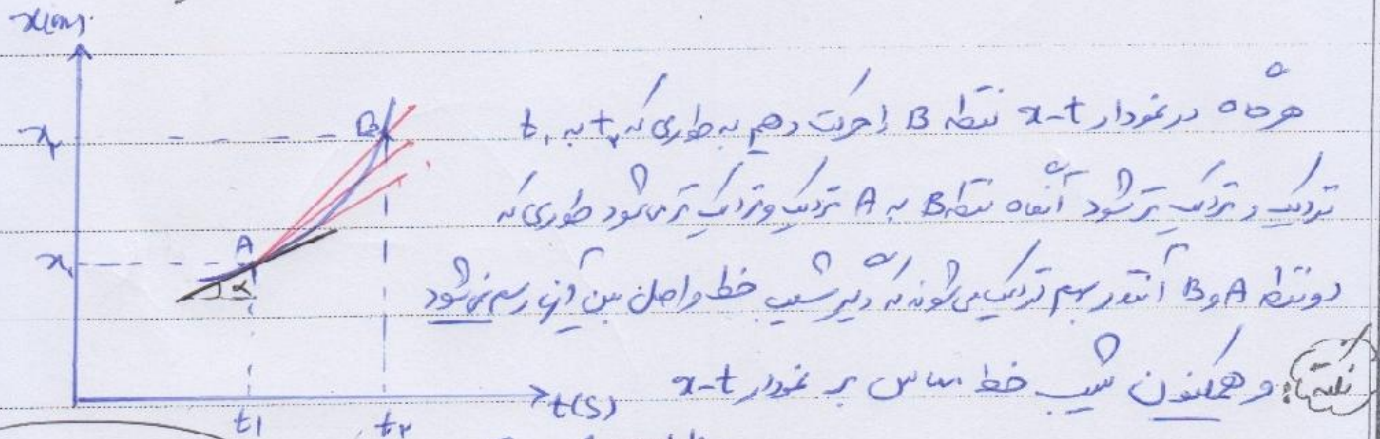 x(m)
x۲
B
هرگاه در نمودار x-t نقطه B را حرکت دهیم به طوری که t۲ به t۱
نزدیک و نزدیک تر شود آنگاه نقطه B به A نزدیک و نزدیک تر می شود طوری که
A
x۱
α
دو نقطه A و B آنقدر بهم نزدیک می شوند که دیگر شیب خط واصل بین آن رسم نمی شود
نکته: و همکنون شیب خط مماس بر نمودار x-t
t(s)
t۱
t۲